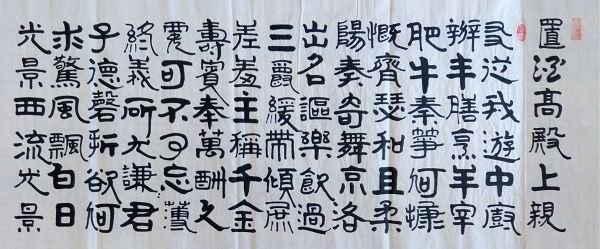 置酒高殿上親
友從我遊中廚
辦丰膳烹羊宰
肥牛秦箏何慷
慨齊瑟和且柔
陽奏奇舞京洛
出名謳樂飲過
三爵緩帶傾庶
差羞主稱千金
壽賓奉萬酬久
要可不可忘薄
終義所尤謙君
子德磬折欲何
求驚風飄白日
光景西流光景